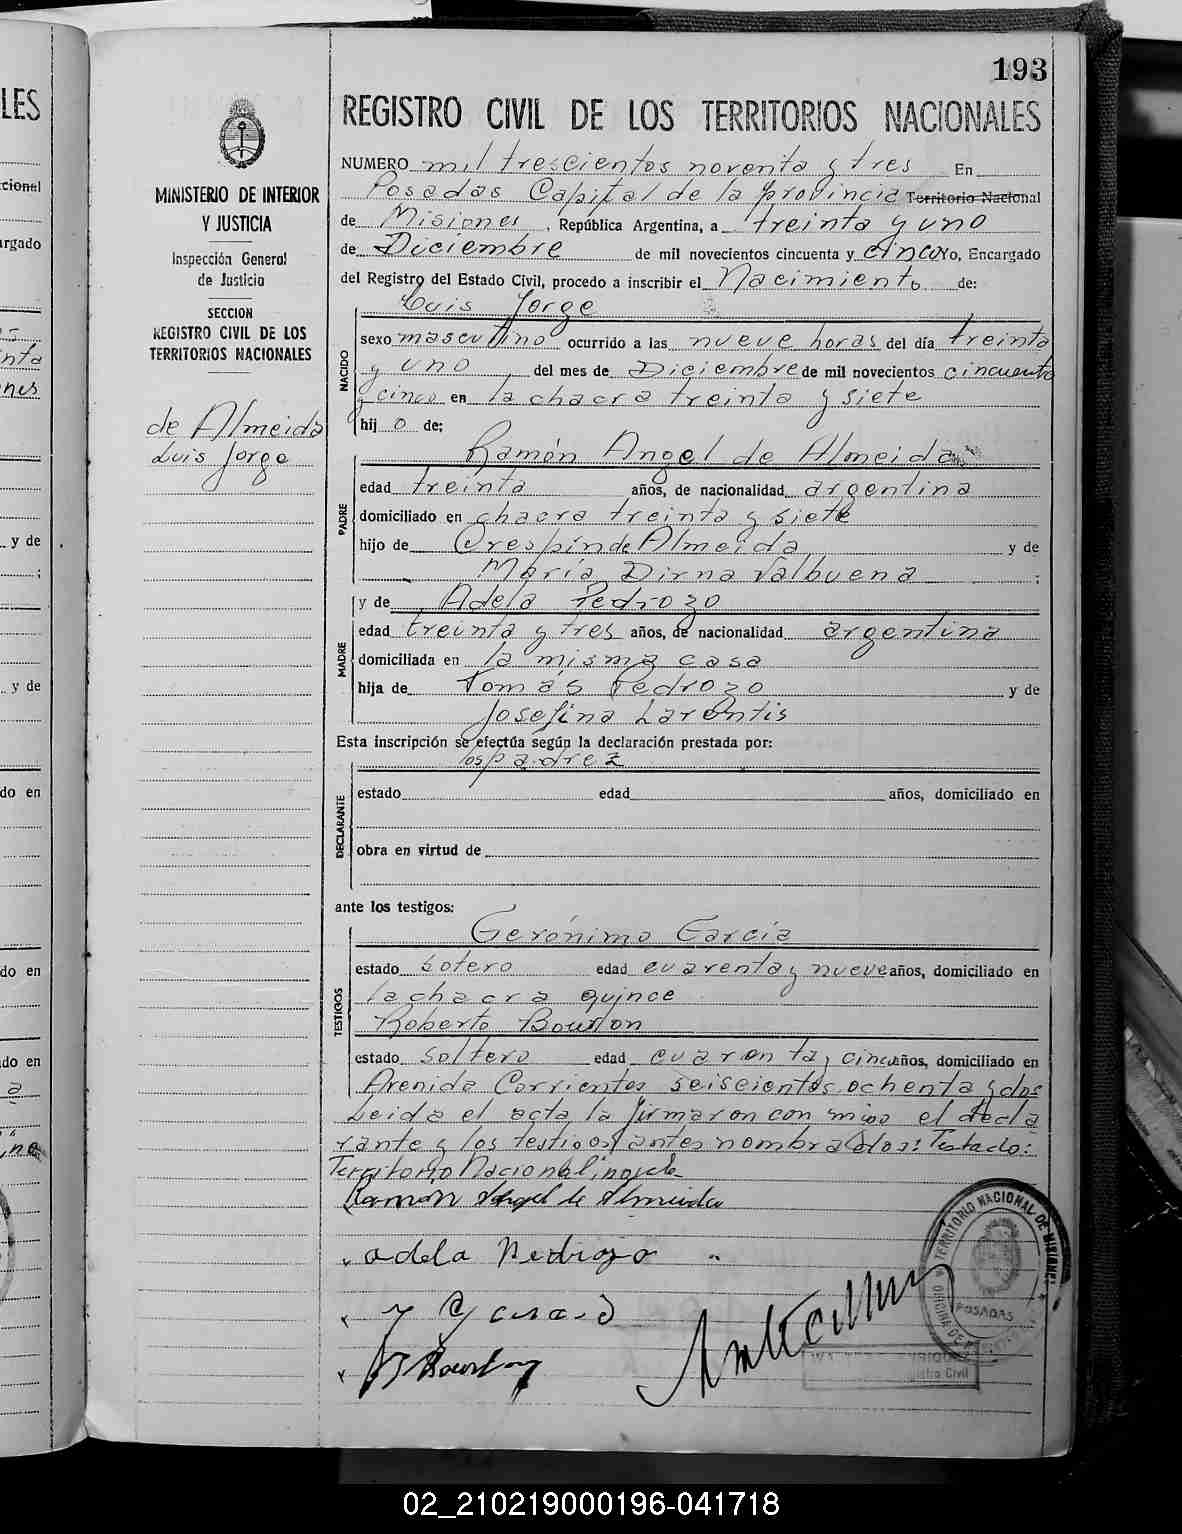 193
REGISTRO CIVIL DE LOS TERRITORIOS NACIONALES
NUMERO mil trescientos noventa y tres En
Posadas Capital de la provincia Territorio Nacional
de Misiones, República Argentina, a treinta y uno
de Diciembre de mil novecientos cincuenta y cinco yo, Encargado
del Registro del Estado Civil, procedo a inscribir el Nacimiento de:
Luis Jorge
NACIDO
sexo masculino ocurrido a las nueve horas del día treinta
y uno del mes de Diciembre de mil novecientos cincuenta
y cinco en la chacra treinta y siete
hijo de:
Ramón Angel de Almeida
PADRE
edad treinta años, de nacionalidad argentina
domiciliado en chacra treinta y siete
hijo de Crespín de Almeida y de
María Dirna Valbuena ;
y de Adela Pedrozo
MADRE
edad treinta y tres años, de nacionalidad argentina
domiciliada en la misma casa
hija de Tomás Pedrozo y de
Josefina Larentis
Esta inscripción se efectúa según la declaración prestada por:
los padrez
DECLARANTE
estado edad años, domiciliado en
obra en virtud de
ante los testigos:
Gerónimo García
TESTIGOS
estado sotero edad cuarenta y nueve años, domiciliado en
la chacra quince
Roberto Bourlon
estado soltero edad cuarenta y cinco años, domiciliado en
Avenida Corrientes seiscientos ochenta y dos
Leida el acta la firmaron con migo el decla
rante y los testigos antes nombrados: Testado:
Territorio Nacional
Ramon Angel de Almeida
adela Pedrozo
MINISTERIO DE INTERIOR
Y JUSTICIA
Inspección General
de Justicia
SECCION
REGISTRO CIVIL DE LOS
TERRITORIOS NACIONALES
de Almeida
Luis Jorge
TERRITORIO NACIONAL DE MISIONES
POSADAS
LES
cional
argado
nta
nes
y de
y de
do en
do en
do en
02_210219000196-041718